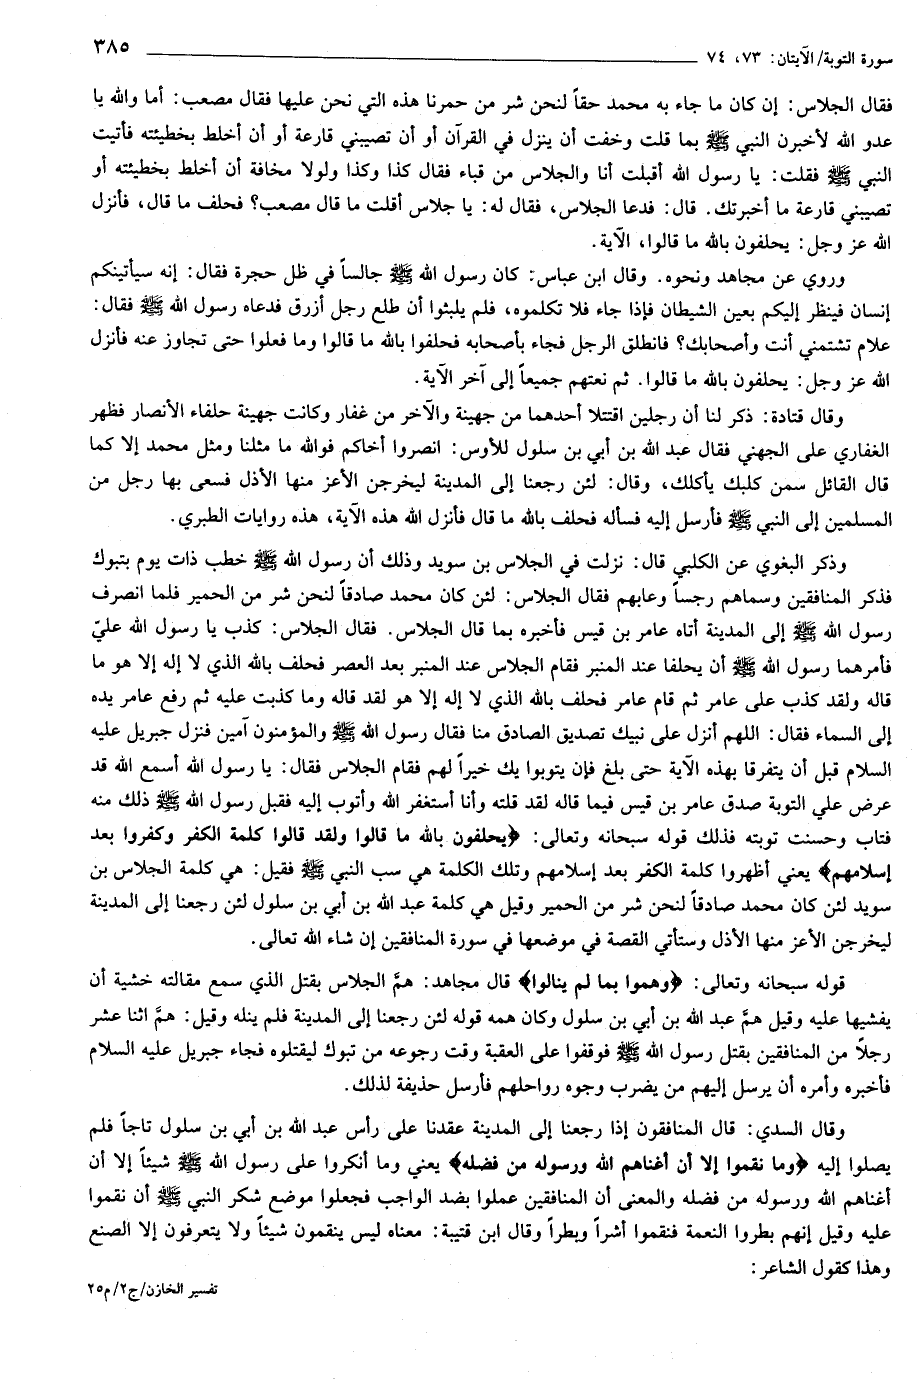 سورة التوبة/ الآيتان: ٧٣، ٧٤ ٣٨٥
فقال الجلاس: إن كان ما جاء به محمد حقاً لنحن شر من حمرنا هذه التي نحن عليها فقال مصعب: أما والله يا
عدو الله لأخبرن النبي ﷺ بما قلت وخفت أن ينزل في القرآن أو أن تصيبني قارعة أو أن أخلط بخطيئته فأتيت
النبي ﷺ فقلت: يا رسول الله أقبلت أنا والجلاس من قباء فقال كذا وكذا ولولا مخافة أن أخلط بخطيئته أو
تصيبني قارعة ما أخبرتك. قال: فدعا الجلاس، فقال له: يا جلاس أقلت ما قال مصعب؟ فحلف ما قال، فأنزل
الله عز وجل: يحلفون بالله ما قالوا، الآية.
وروي عن مجاهد ونحوه. وقال ابن عباس: كان رسول الله ﷺ جالساً في ظل حجرة فقال: إنه سيأتينكم
إنسان فينظر إليكم بعين الشيطان فإذا جاء فلا تكلموه، فلم يلبثوا أن طلع رجل أزرق فدعاه رسول الله ﷺ فقال:
علام تشتمني أنت وأصحابك؟ فانطلق الرجل فجاء بأصحابه فحلفوا بالله ما قالوا وما فعلوا حتى تجاوز عنه فأنزل
الله عز وجل: يحلفون بالله ما قالوا. ثم نعتهم جميعاً إلى آخر الآية.
وقال قتادة: ذكر لنا أن رجلين اقتتلا أحدهما من جهينة والآخر من غفار وكانت جهينة حلفاء الأنصار فظهر
الغفاري على الجهني فقال عبد الله بن أبي بن سلول للأوس: انصروا أخاكم فوالله ما مثلنا ومثل محمد إلا كما
قال القائل سمن كلبك يأكلك، وقال: لئن رجعنا إلى المدينة ليخرجن الأعز منها الأذل فسعى بها رجل من
المسلمين إلى النبي ﷺ فأرسل إليه فسأله فحلف بالله ما قال فأنزل الله هذه الآية، هذه روايات الطبري.
وذكر البغوي عن الكلبي قال: نزلت في الجلاس بن سويد وذلك أن رسول الله ﷺ خطب ذات يوم بتبوك
فذكر المنافقين وسماهم رجساً وعابهم فقال الجلاس: لئن كان محمد صادقاً لنحن شر من الحمير فلما انصرف
رسول الله ﷺ إلى المدينة أتاه عامر بن قيس فأخبره بما قال الجلاس. فقال الجلاس: كذب يا رسول الله عليّ
فأمرهما رسول الله ﷺ أن يحلفا عند المنبر فقام الجلاس عند المنبر بعد العصر فحلف بالله الذي لا إله إلا هو ما
قاله ولقد كذب على عامر ثم قام عامر فحلف بالله الذي لا إله إلا هو لقد قاله وما كذبت عليه ثم رفع عامر يده
إلى السماء فقال: اللهم أنزل على نبيك تصديق الصادق منا فقال رسول الله ﷺ والمؤمنون آمين فنزل جبريل عليه
السلام قبل أن يتفرقا بهذه الآية حتى بلغ فإن يتوبوا يك خيراً لهم فقام الجلاس فقال: يا رسول الله أسمع الله قد
عرض علي التوبة صدق عامر بن قيس فيما قاله لقد قلته وأنا أستغفر الله وأتوب إليه فقبل رسول الله ﷺ ذلك منه
فتاب وحسنت توبته فذلك قوله سبحانه وتعالى: ﴿يحلفون بالله ما قالوا ولقد قالوا كلمة الكفر وكفروا بعد
إسلامهم﴾ يعني أظهروا كلمة الكفر بعد إسلامهم وتلك الكلمة هي سب النبي ﷺ فقيل: هي كلمة الجلاس بن
سويد لئن كان محمد صادقاً لنحن شر من الحمير وقيل هي كلمة عبد الله بن أبي بن سلول لئن رجعنا إلى المدينة
ليخرجن الأعز منها الأذل وستأتي القصة في موضعها في سورة المنافقين إن شاء الله تعالى.
قوله سبحانه وتعالى: ﴿وهموا بما لم ينالوا﴾ قال مجاهد: همَّ الجلاس بقتل الذي سمع مقالته خشية أن
يفشيها عليه وقيل همَّ عبد الله بن أبي بن سلول وكان همه قوله لئن رجعنا إلى المدينة فلم ينله وقيل: همَّ اثنا عشر
رجلاً من المنافقين بقتل رسول الله ﷺ فوقفوا على العقبة وقت رجوعه من تبوك ليقتلوه فجاء جبريل عليه السلام
فأخبره وأمره أن يرسل إليهم من يضرب وجوه رواحلهم فأرسل حذيفة لذلك.
وقال السدي: قال المنافقون إذا رجعنا إلى المدينة عقدنا على رأس عبد الله بن أبي بن سلول تاجاً فلم
يصلوا إليه ﴿وما نقموا إلا أن أغناهم الله ورسوله من فضله﴾ يعني وما أنكروا على رسول الله ﷺ شيئاً إلا أن
أغناهم الله ورسوله من فضله والمعنى أن المنافقين عملوا بضد الواجب فجعلوا موضع شكر النبي ﷺ أن نقموا
عليه وقيل إنهم بطروا النعمة فنقموا أشراً وبطراً وقال ابن قتيبة: معناه ليس ينقمون شيئاً ولا يتعرفون إلا الصنع
وهذا كقول الشاعر:
تفسير الخازن/ج٢/م٢٥